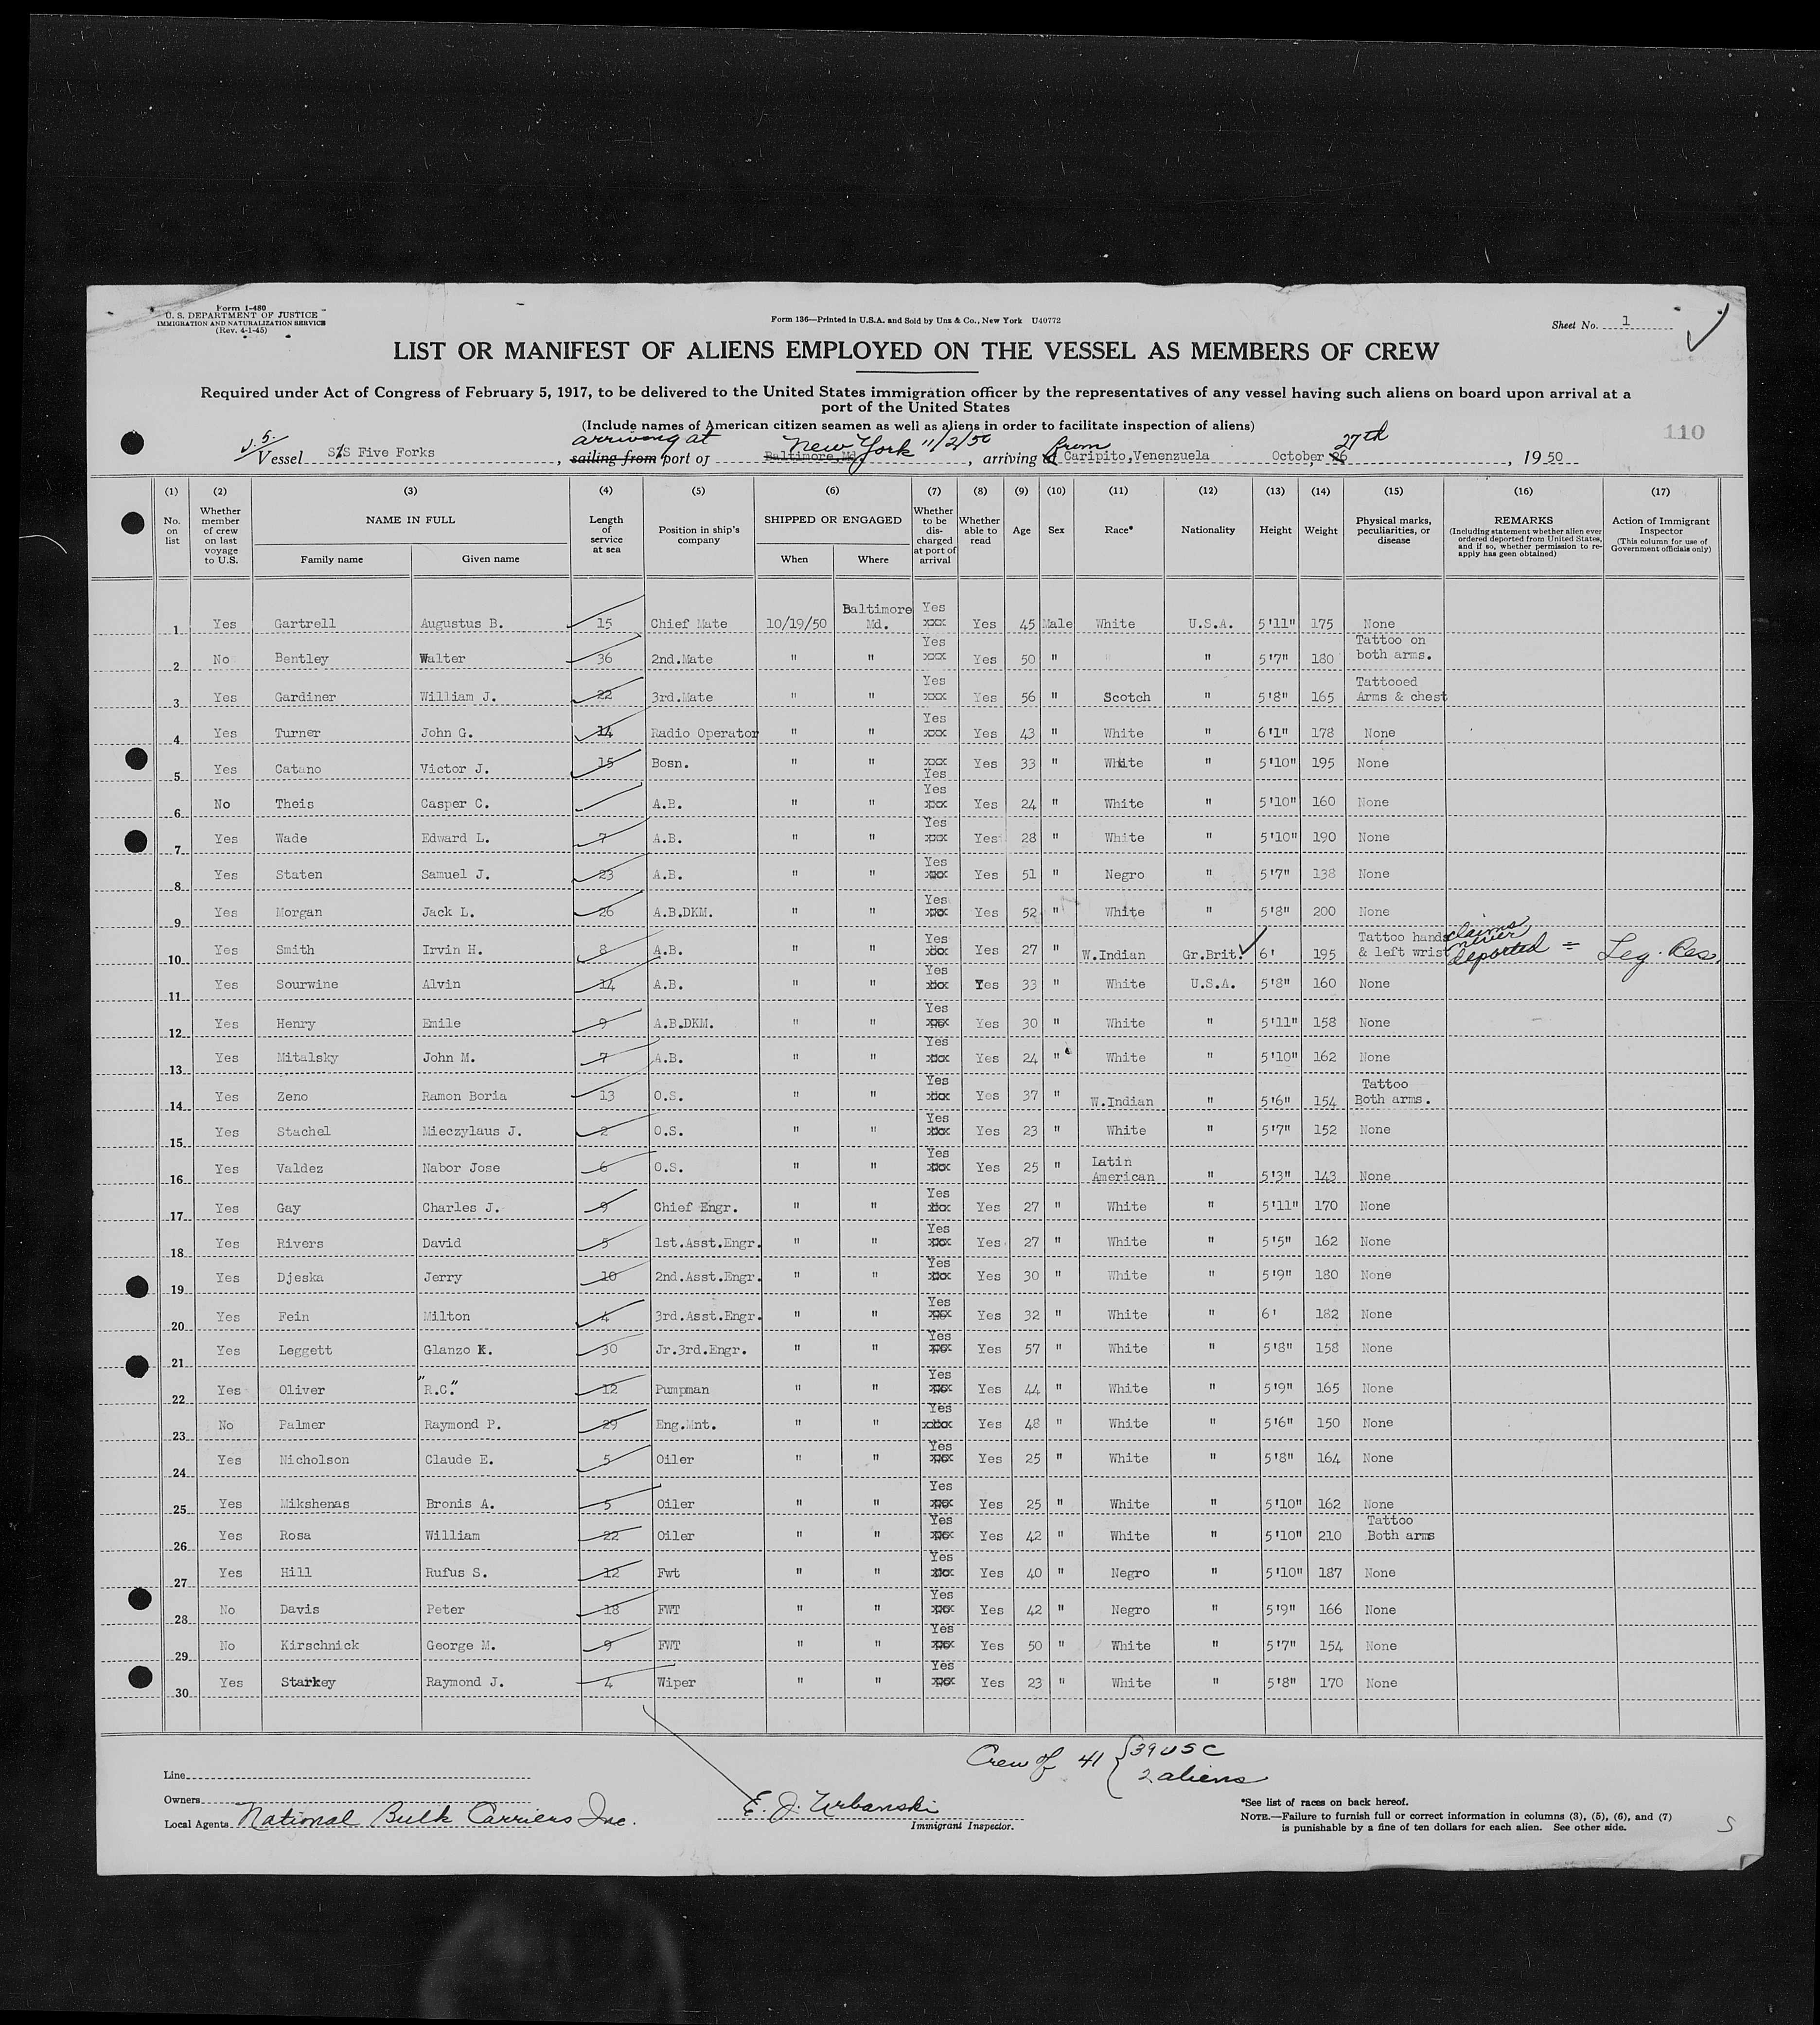 Form I-480
U. S. DEPARTMENT OF JUSTICE
IMMIGRATION AND NATURALIZATION SERVICE
(Rev. 4-1-45)
Form 136—Printed in U.S.A. and Sold by Unz & Co., New York U40772
Sheet No. 1
LIST OR MANIFEST OF ALIENS EMPLOYED ON THE VESSEL AS MEMBERS OF CREW
Required under Act of Congress of February 5, 1917, to be delivered to the United States immigration officer by the representatives of any vessel having such aliens on board upon arrival at a
port of the United States
(Include names of American citizen seamen as well as aliens in order to facilitate inspection of aliens)
110
arriving at New York 11/2/50 from 27th
Vessel S/S Five Forks, sailing from port of Baltimore,Md., arriving at Caripito,Venenzuela October 26, 19 50
(1) (2) (3) (4) (5) (6) (7) (8) (9) (10) (11) (12) (13) (14) (15) (16) (17)
No. on list
Whether member of crew on last voyage to U.S.
NAME IN FULL
Family name
Given name
Length of service at sea
Position in ship's company
SHIPPED OR ENGAGED
When
Where
Whether to be discharged at port of arrival
Whether able to read
Age
Sex
Race*
Nationality
Height
Weight
Physical marks, peculiarities, or disease
REMARKS
(Including statement whether alien ever ordered deported from United States, and if so, whether permission to re-apply has geen obtained)
Action of Immigrant Inspector
(This column for use of Government officials only)
1 Yes Gartrell Augustus B. 15 Chief Mate 10/19/50 Baltimore Md. Yes xxx Yes 45 Male White U.S.A. 5'11" 175 None
2 No Bentley Walter 36 2nd.Mate " " Yes xxx Yes 50 " " " 5'7" 180 Tattoo on both arms.
3 Yes Gardiner William J. 22 3rd.Mate " " Yes xxx Yes 56 " Scotch " 5'8" 165 Tattooed Arms & chest
4 Yes Turner John G. 14 Radio Operator " " Yes xxx Yes 43 " White " 6'1" 178 None
5 Yes Catano Victor J. 15 Bosn. " " xxx Yes Yes 33 " White " 5'10" 195 None
6 No Theis Casper C. A.B. " " Yes xxx Yes 24 " White " 5'10" 160 None
7 Yes Wade Edward L. 7 A.B. " " Yes xxx Yes 28 " White " 5'10" 190 None
8 Yes Staten Samuel J. 23 A.B. " " Yes xxx Yes 51 " Negro " 5'7" 138 None
9 Yes Morgan Jack L. 26 A.B.DKM. " " Yes xxx Yes 52 " White " 5'8" 200 None
10 Yes Smith Irvin H. 8 A.B. " " Yes xxx Yes 27 " W.Indian Gr.Brit. 6' 195 Tattoo hands & left wrist claims never deported = Leg. Res.
11 Yes Sourwine Alvin 14 A.B. " " Yes xxx Yes 33 " White U.S.A. 5'8" 160 None
12 Yes Henry Emile 9 A.B.DKM. " " Yes xxx Yes 30 " White " 5'11" 158 None
13 Yes Mitalsky John M. 7 A.B. " " Yes xxx Yes 24 " White " 5'10" 162 None
14 Yes Zeno Ramon Boria 13 O.S. " " Yes xxx Yes 37 " W.Indian " 5'6" 154 Tattoo Both arms.
15 Yes Stachel Mieczylaus J. 2 O.S. " " Yes xxx Yes 23 " White " 5'7" 152 None
16 Yes Valdez Nabor Jose 6 O.S. " " Yes xxx Yes 25 " Latin American " 5'3" 143 None
17 Yes Gay Charles J. 9 Chief Engr. " " Yes xxx Yes 27 " White " 5'11" 170 None
18 Yes Rivers David 5 1st.Asst.Engr. " " Yes xxx Yes 27 " White " 5'5" 162 None
19 Yes Djeska Jerry 10 2nd.Asst.Engr. " " Yes xxx Yes 30 " White " 5'9" 180 None
20 Yes Fein Milton 4 3rd.Asst.Engr. " " Yes xxx Yes 32 " White " 6' 182 None
21 Yes Leggett Glanzo K. 30 Jr.3rd.Engr. " " Yes xxx Yes 57 " White " 5'8" 158 None
22 Yes Oliver "R.C." 12 Pumpman " " Yes xxx Yes 44 " White " 5'9" 165 None
23 No Palmer Raymond P. 29 Eng.Mnt. " " Yes xxxx Yes 48 " White " 5'6" 150 None
24 Yes Nicholson Claude E. 5 Oiler " " Yes xxx Yes 25 " White " 5'8" 164 None
25 Yes Mikshenas Bronis A. 5 Oiler " " Yes xxx Yes 25 " White " 5'10" 162 None
26 Yes Rosa William 22 Oiler " " Yes xxx Yes 42 " White " 5'10" 210 Tattoo Both arms
27 Yes Hill Rufus S. 12 Fwt " " Yes xxx Yes 40 " Negro " 5'10" 187 None
28 No Davis Peter 18 FWT " " Yes xxx Yes 42 " Negro " 5'9" 166 None
29 No Kirschnick George M. 9 FWT " " Yes xxx Yes 50 " White " 5'7" 154 None
30 Yes Starkey Raymond J. 4 Wiper " " Yes xxx Yes 23 " White " 5'8" 170 None
Crew of 41 { 39 USC
2 aliens
Line
Owners
Local Agents National Bulk Carriers Inc.
E. J. Urbanski
Immigrant Inspector.
*See list of races on back hereof.
NOTE.—Failure to furnish full or correct information in columns (3), (5), (6), and (7)
is punishable by a fine of ten dollars for each alien. See other side.